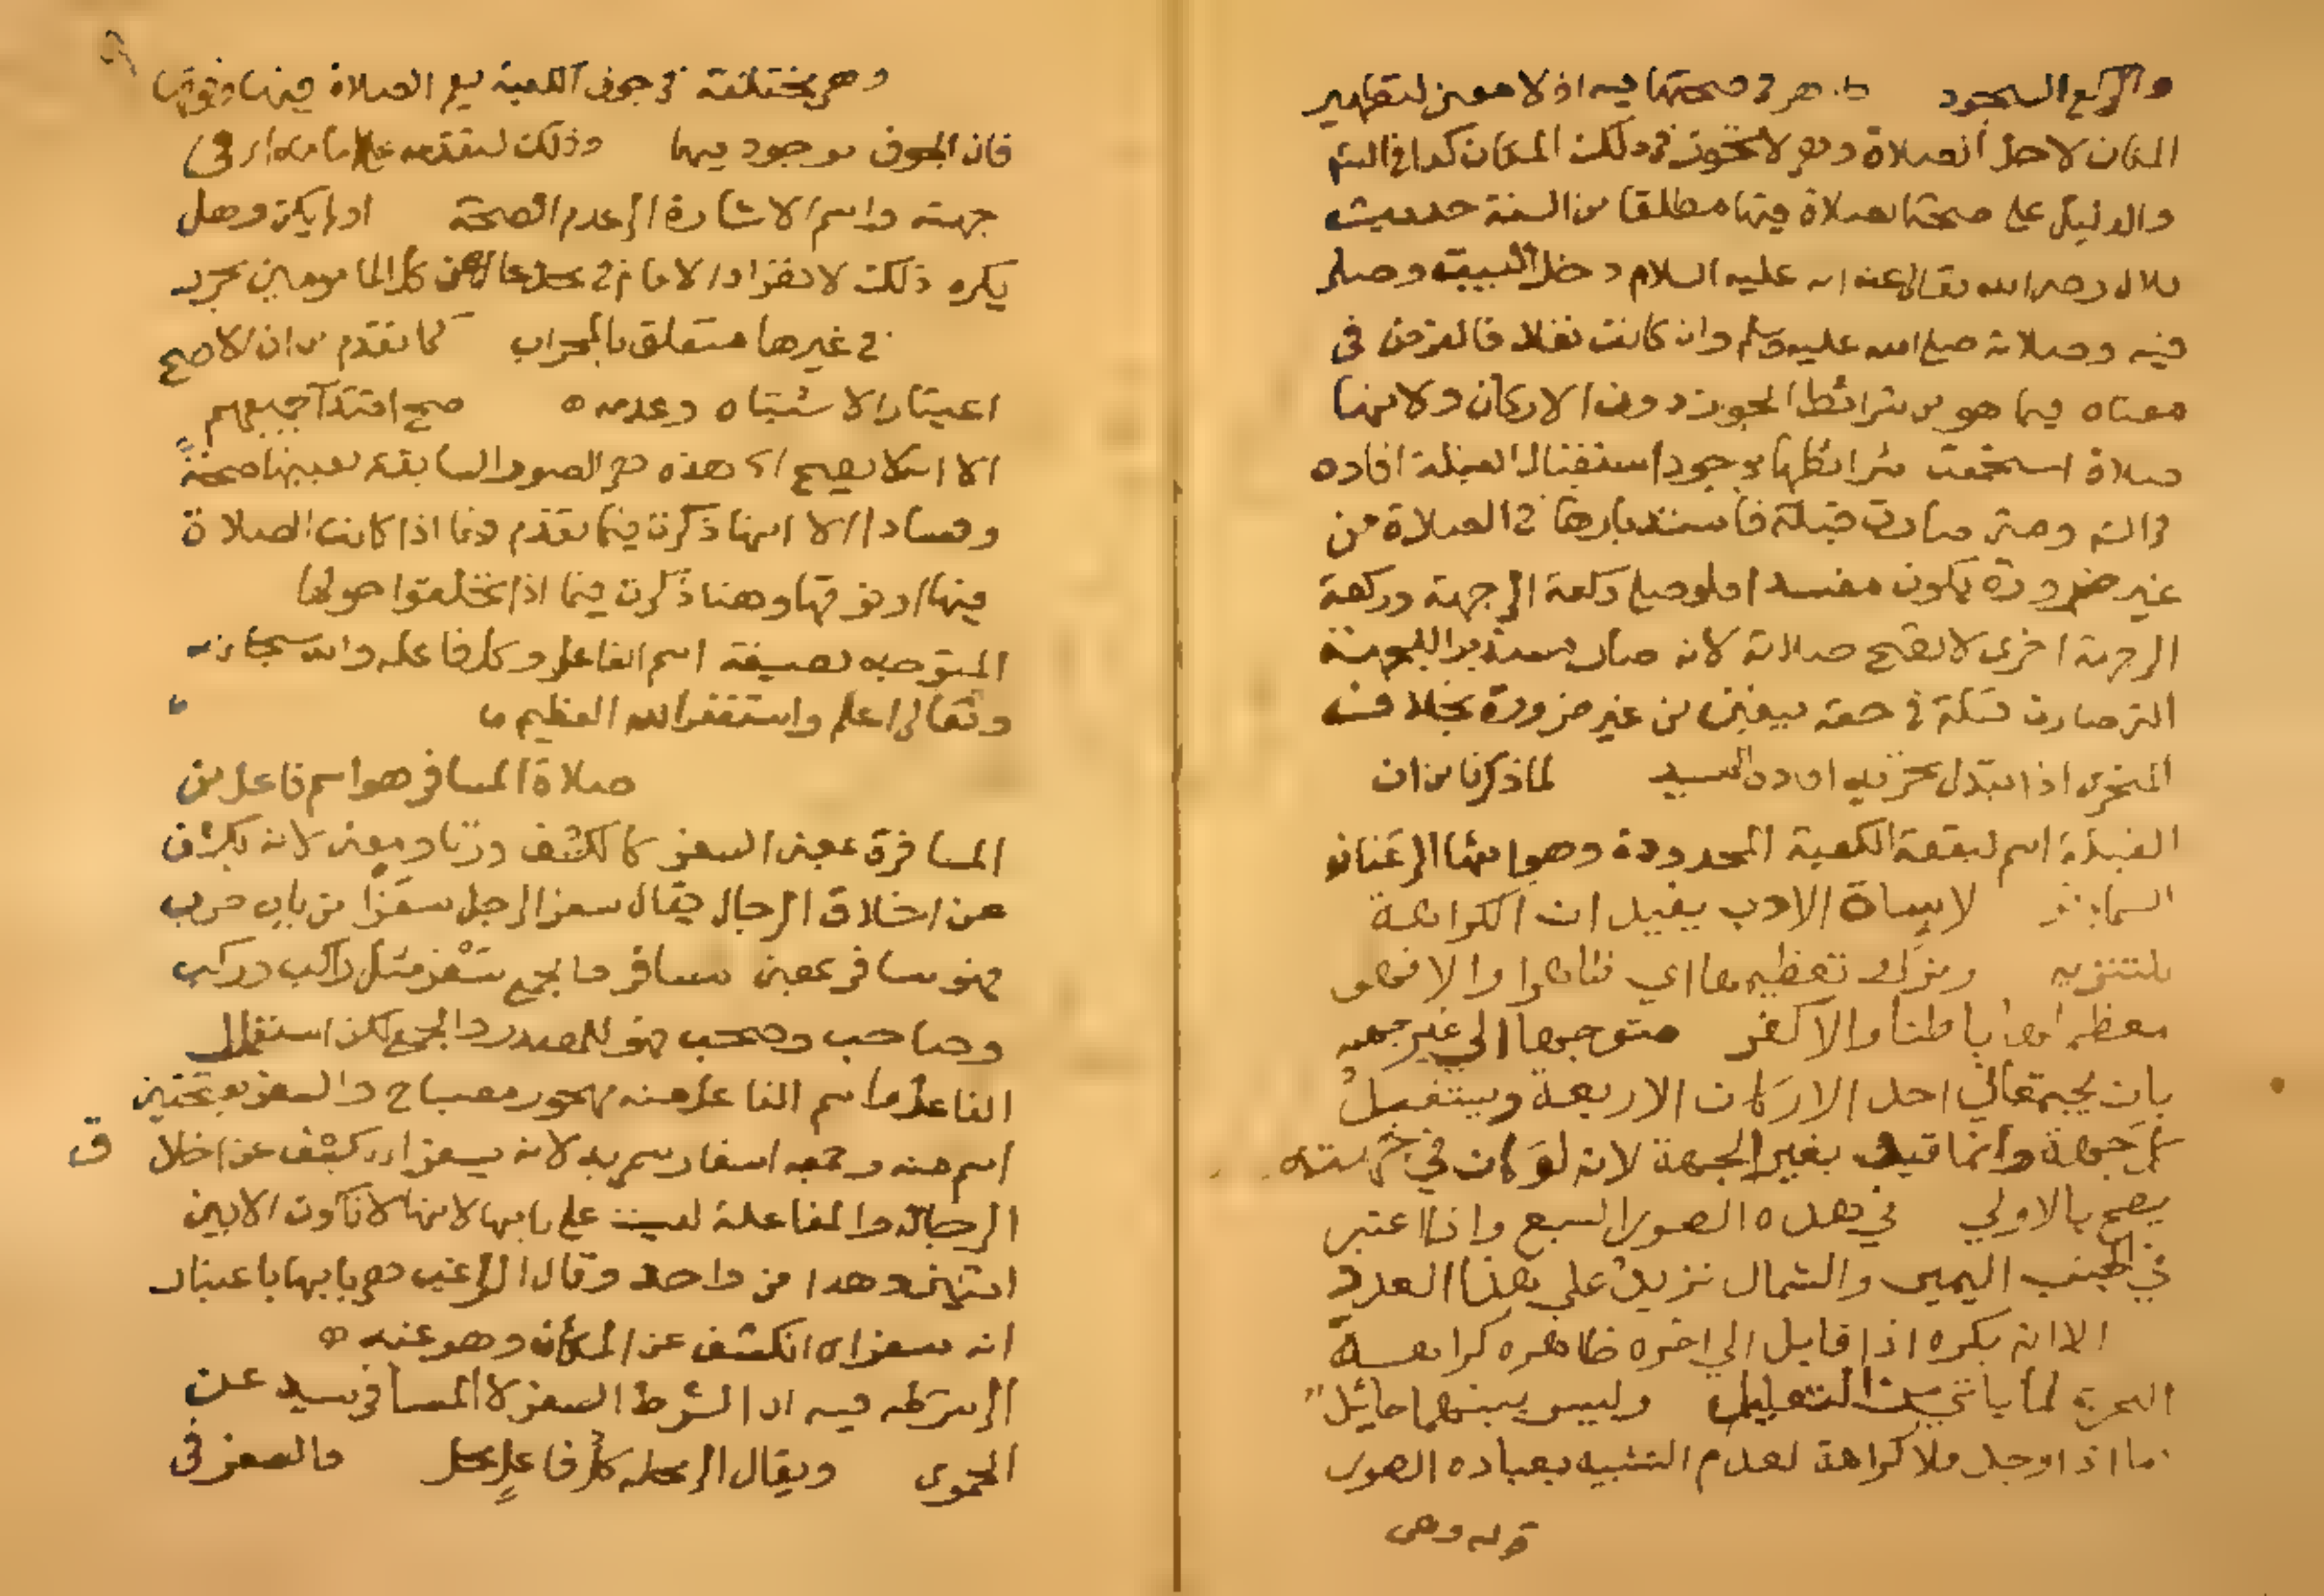 والركع السجود ظاهر في صحتها فيه اذ لا معنى لتطهير
المكان لاجل الصلاة وهي لا تجوز في ذلك المكان كذا في
والدليل على صحة الصلاة فيها مطلقا من السنة حديث
بلال رضي الله تعالى عنه انه عليه السلام دخل البيت وصلى
فيه وصلاته صلى الله عليه وسلم وان كانت نفلا فالفرض في
معناه فيما هو من شرائط الجواز دون الاركان ولانها
صلاة استجمعت شرائطها بوجود استقبال القبلة افاده
في ومتى صارت قبلة فاستدبارها في الصلاة من
غير ضرورة يكون مفسدا فلو صلى ركعة الى جهة وركعة
الى جهة اخرى لا تصح صلاته لانه صار مستدبرا للجهة
التي صارت قبلة في حقه بيقين من غير ضرورة بخلاف
المتحري اذا تبدل تحريه افاده السيد لما ذكرنا من ان
القبلة اسم لبقعة الكعبة المحدودة وهوائها الى عنان
السماء لاساة الادب يفيد ان الكراهة
للتنزيه وترك تعظيمها اي ظاهرا والا فهو
معظم لها باطنا والا كفر متوجها الي غير جهة
بان يجي تعالي احد الاركان الاربعة ويستقبل
كل جهة وانما قيد بغير الجهة لانه لو كان في جهته
يصح بالاولي في هذه الصور السبع واذا اعتبر
في الجنب اليمين والشمال تزيد علي هذا العدد
الا انه يكره اذا قابل الي اخره ظاهره كراهة
لما ياتي من التعليل وليس بينهما حائل
اما اذا وجد فلا كراهة لعدم التشبيه بعباده الصور
قوله وهي
وهي مختلفة في جوف الكعبة يعم الصلاة فيها وفوقها
فان الجوف موجود فيها وذلك لتقدمه على امامه اي في
جهته واسم الاشارة الى عدم الصحة اولم يكن وهل
يكره ذلك لانفراد الامام في محل عال عن كل المامومين يحرر
في غيرها متعلق بالمحراب كما تقدم من ان الاصح
اعتبار الاشتباه وعدمه صح اقتدآ جميعهم
الا انه لا يصح اي هذه هي الصور السابقة بعينها صحة
وفسادا الا انها ذكرت فيما تقدم فيما اذا كانت الصلاة
فيها او فوقها وهنا ذكرت فيما اذا تحلقوا حولها
المتوجه بصيغة اسم الفاعل وكل فاعله والله سبحانه
وتعالى اعلم واستغفر الله العظيم
صلاة المسافر هو اسم فاعل من
المسافرة بمعنى السفر كالكشف وزنا ومعنى لانه يكشف
عن اخلاق الرجال يقال سفر الرجل سفرا من باب ضرب
فهو سافر بمعنى مسافر فالجمع سَفْر مثل راكب وركب
وصاحب وصحب فهو للمصدر والجمع لكن استعمال
الفاعل واسم الفاعل منه مهجور مصباح والسفر بفتحتين
اسم منه وجمعه اسفار سمي به لانه يسفر اي يكشف عن اخلا ق
الرجال والمفاعلة ليست على بابها لانها لا تكون الا بين
اثنين وهذا من واحد وقال الراغب هي بابها باعتبار
انه سفر اي انكشف عن المكان وهو عنه
الى شرطه فيه ان الشرط السفر لا المسافر سيد عن
الحموي ويقال الى محله كل فاعل محل فالسفر في